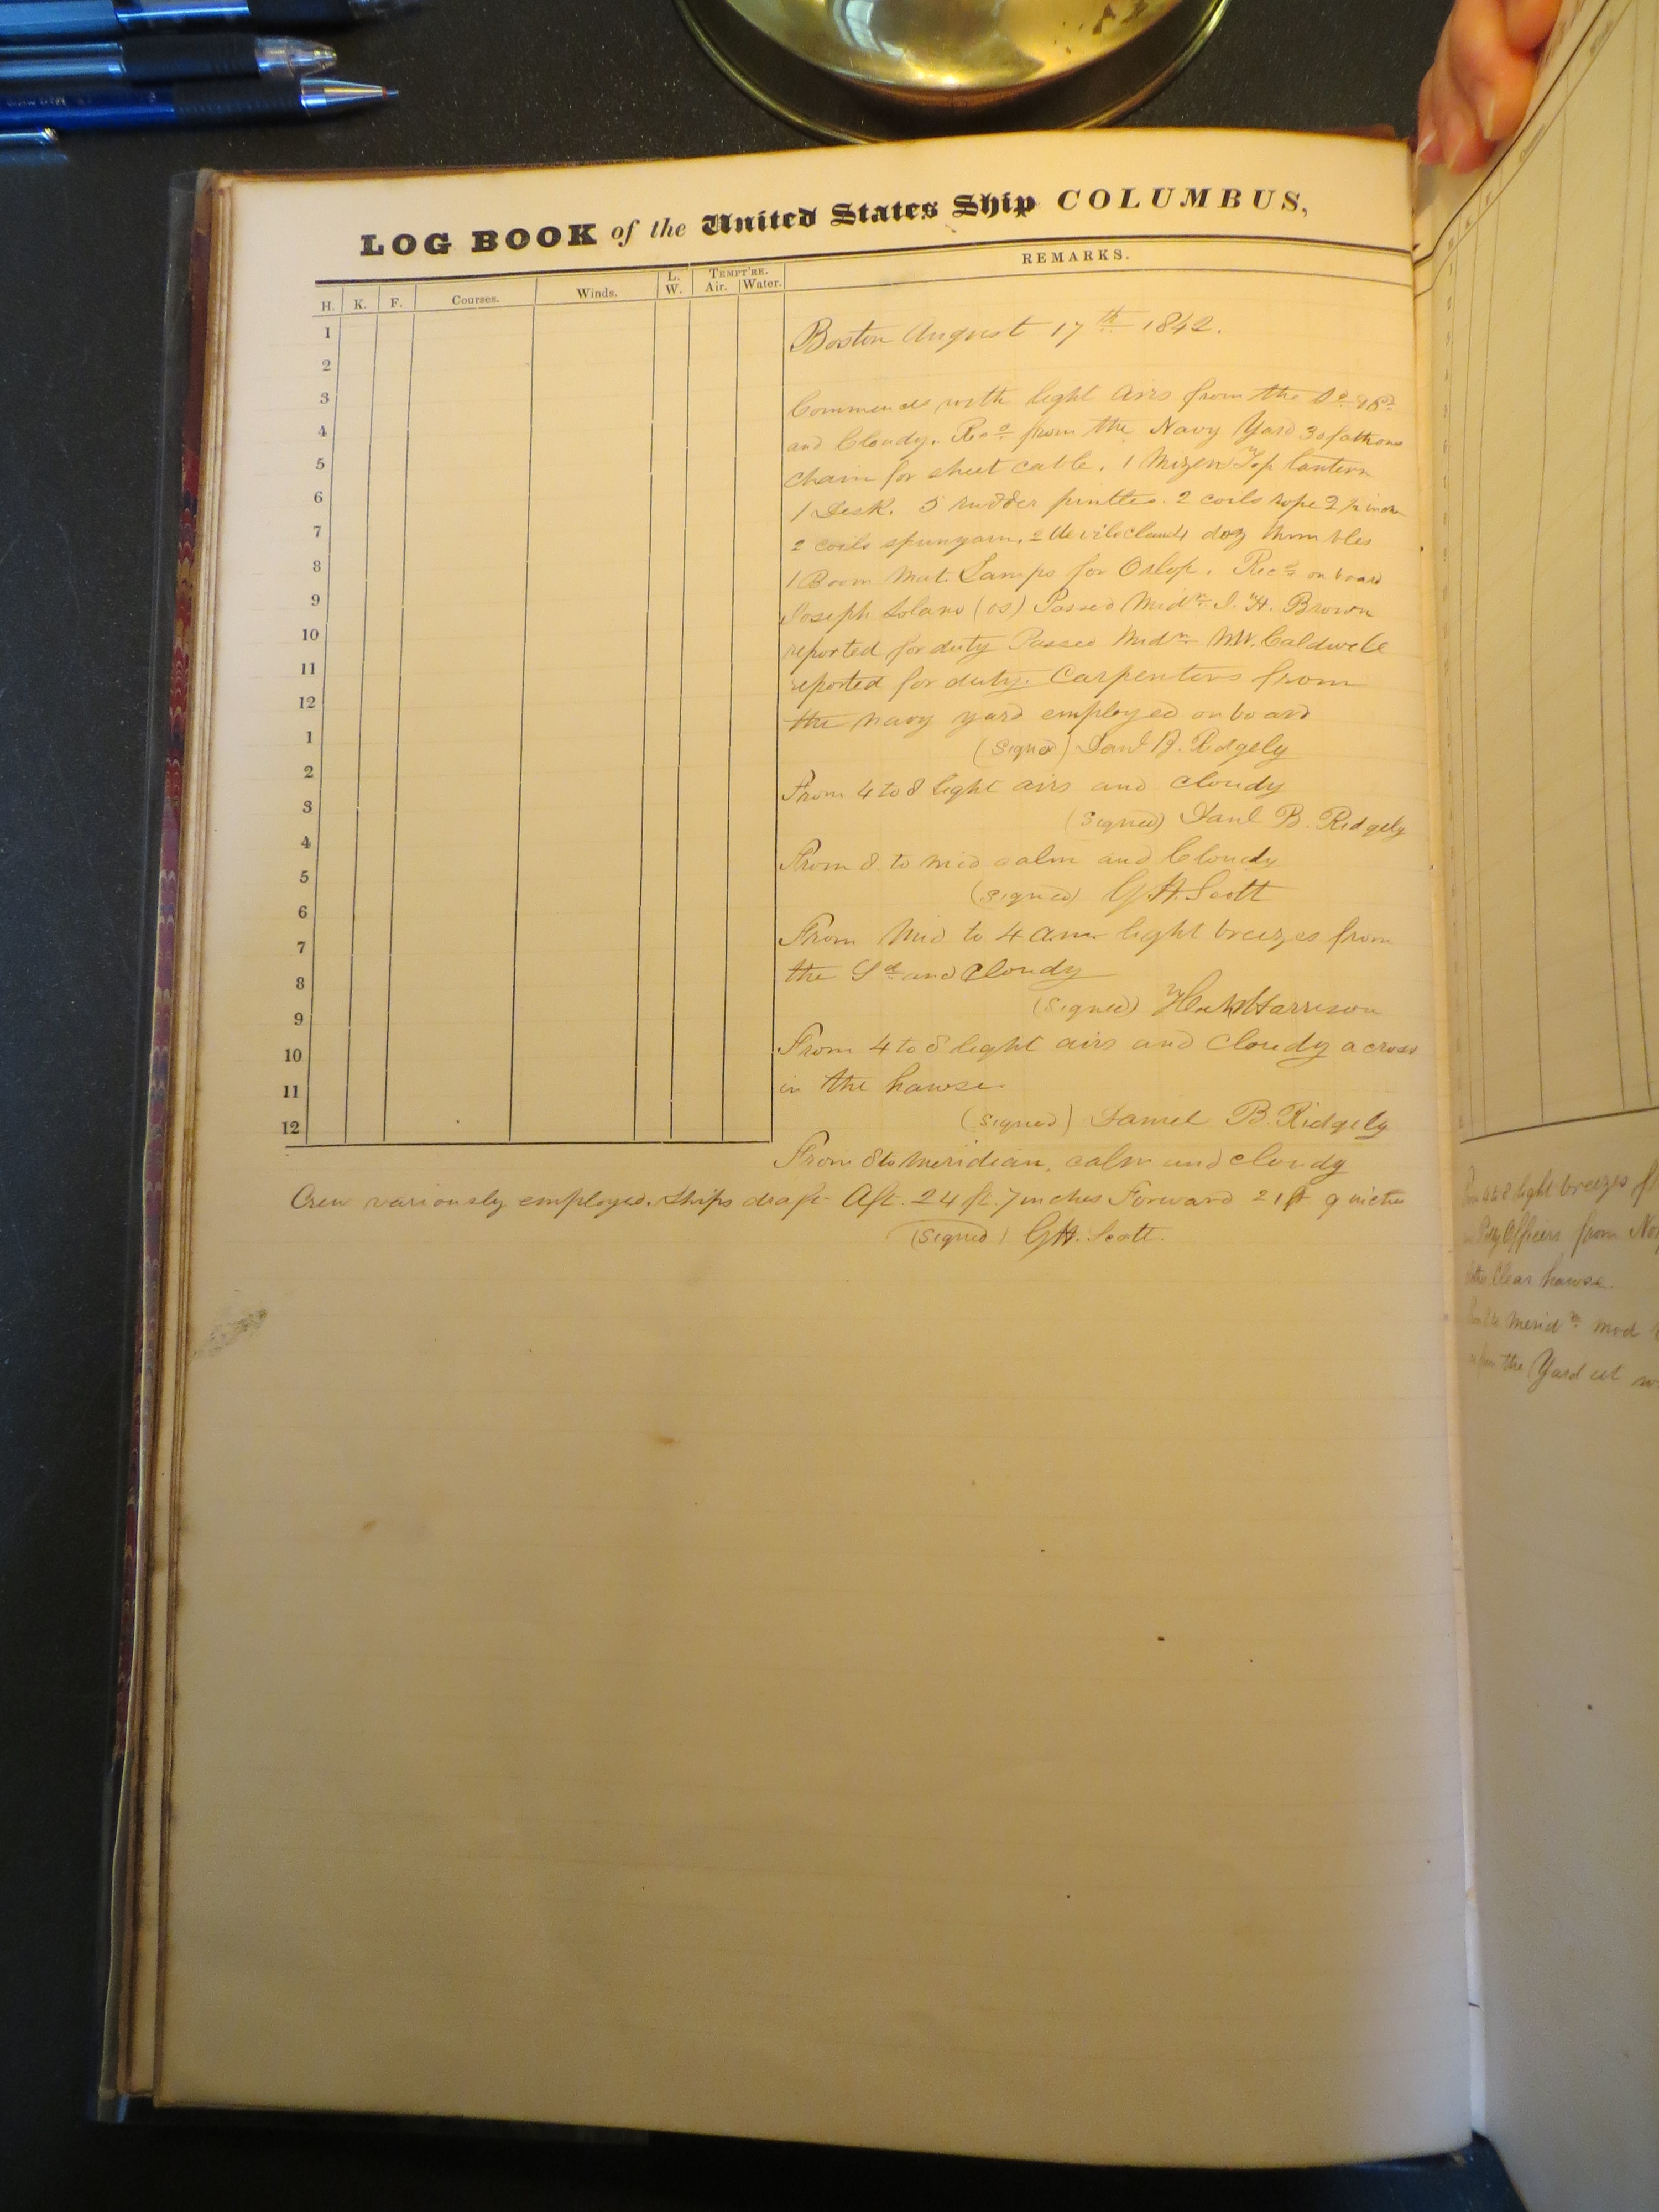 LOG BOOK of the United States Ship COLUMBUS,
H. K. F. Courses. Winds. L. W. TEMPT'RE. Air. Water. REMARKS.
1
2
3
4
5
6
7
8
9
10
11
12
1
2
3
4
5
6
7
8
9
10
11
12
Boston August 17th 1842.
Commences with light airs from the
and Cloudy. Recd from the Navy Yard 30 fathoms
chain for sheet cable. 1 Mizen Top lantern
1 Desk. 5 rudder pintles. 2 coils rope 2
2 coils spunyarn. 2 devils claws doz thimbles
1 Boom Mat. Lamps for Orlop. Recd on board
Joseph Solano (OS) Passed Midn J. H. Brown
reported for duty Passed Midn Caldwell
reported for duty. Carpenters from
the navy yard employed on board
(Signed) Saml B. Ridgely
From 4 to 8 light airs and cloudy
(Signed) Saml B. Ridgely
From 8 to mid calm and Cloudy
(Signed) G H. Scott
From Mid to 4 a.m. light breezes from
the Sd and Cloudy
(Signed) Harrison
From 4 to 8 light airs and cloudy across
in the hawse.
(Signed) Samel B. Ridgely
From 8 to Meridian, calm and cloudy
Crew variously employed. Ships draft Aft. 24 ft. 7 inches Forward 21 ft 9 inches
(Signed) G H. Scott.
4 to 8 light breezes
Petty Officers from
Clear hawse.
Meridn mod
the Yard at